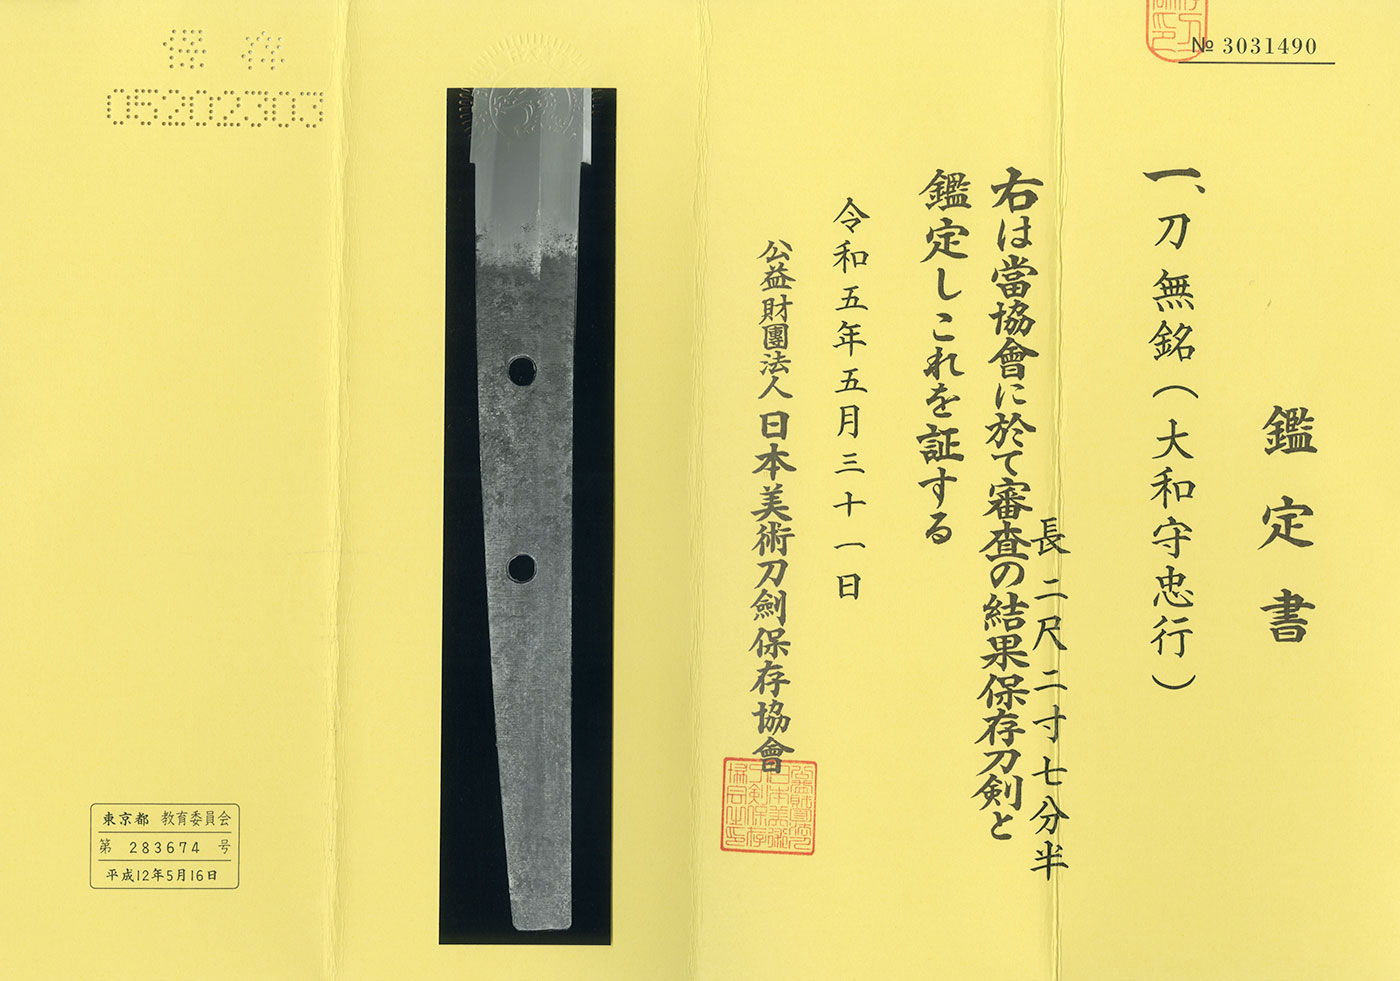 № 3031490
鑑定書
一、刀 無銘(大和守忠行)
長 二尺二寸七分半
右は當協會に於て審査の結果保存刀剣と
鑑定しこれを証する
令和五年五月三十一日
公益財團法人 日本美術刀劍保存協會
保存
05202303
東京都 教育委員会
第 283674 号
平成12年5月16日